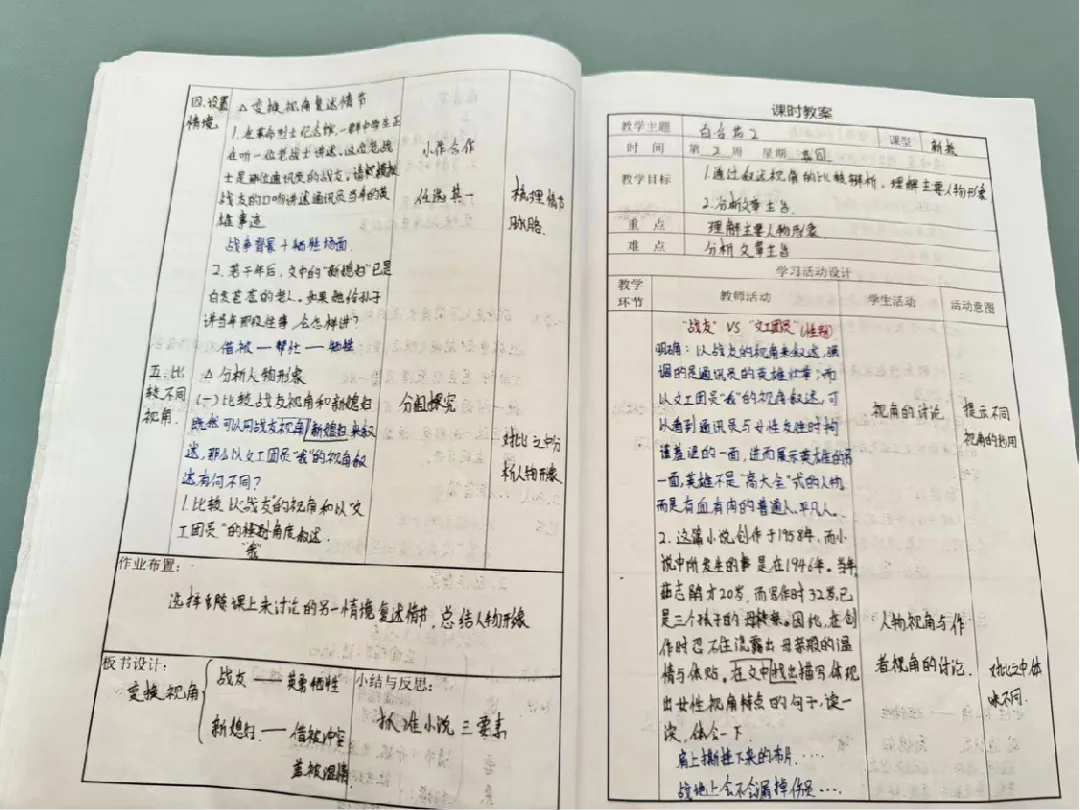 四.设置
情境
△ 变换视角复述情节
1.在革命烈士纪念馆,一群中学生正
在听一位老战士讲述,这位老战
士是那位通讯员的战友。请你模拟
战友的口吻讲述通讯员当年的英
雄事迹
战争背景+牺牲场面.
2.若干年后,文中的“新媳妇”已是
白发苍苍的老人。如果她给孙子
讲当年那段往事,会怎样讲?
借被—帮忙—牺牲
小作合作
任选其一
梳理情节
脉络.
五.比
较不同
视角.
△ 分析人物形象
(一)比较战友视角和新媳妇
既然可以用战友视角 新媳妇来叙
述,那么以文工团员“我”的视角叙
述有何不同?
1.比较 以“战友”的视角和以“文
工团员”的性别角度叙述.
“我”
分组探究
对比之中分
析人物形象.
作业布置:
选择 课上未讨论的另一情境复述情节,总结人物形象
板书设计:
变换视角
战友 —— 英勇牺牲
新媳妇 —— 借被冲突
盖被温情
小结与反思:
抓准小说三要素
课时教案
教学主题
百合花2
课型
新授
时 间
第 2 周 星期
教学目标
1.通过叙述视角的比较辨析,理解主要人物形象
2.分析文章主旨.
重 点
理解主要人物形象
难 点
分析文章主旨
学习活动设计
教学
环节
教师活动
学生活动
活动意图
“战友” VS “文工团员”(性别)
明确:以战友的视角来叙述,强
调的是通讯员的英雄壮举;而
以文工团员“我”的视角叙述,可
以看到通讯员与女性交往时拘
谨羞涩的一面,进而展示英雄的另
一面,英雄不是“高大全”式的人物,
而是有血有肉的普通人、平凡人。
视角的讨论
提示不同
视角的作用
2.这篇小说创作于1958年,而小
说中所发生的事是在1946年。当年,
茹志鹃才20岁,而写作时32岁,已
是三个孩子的母亲。因此,在创
作时忍不住流露出母亲般的温
情与体贴。在文中找出描写体现
出女性视角特点的句子,读一
读,体会一下.
肩上撕挂下来的布片.....
战地上会不会漏掉伤员....
人物视角与作
者视角的讨论.
对比之中体
味不同.